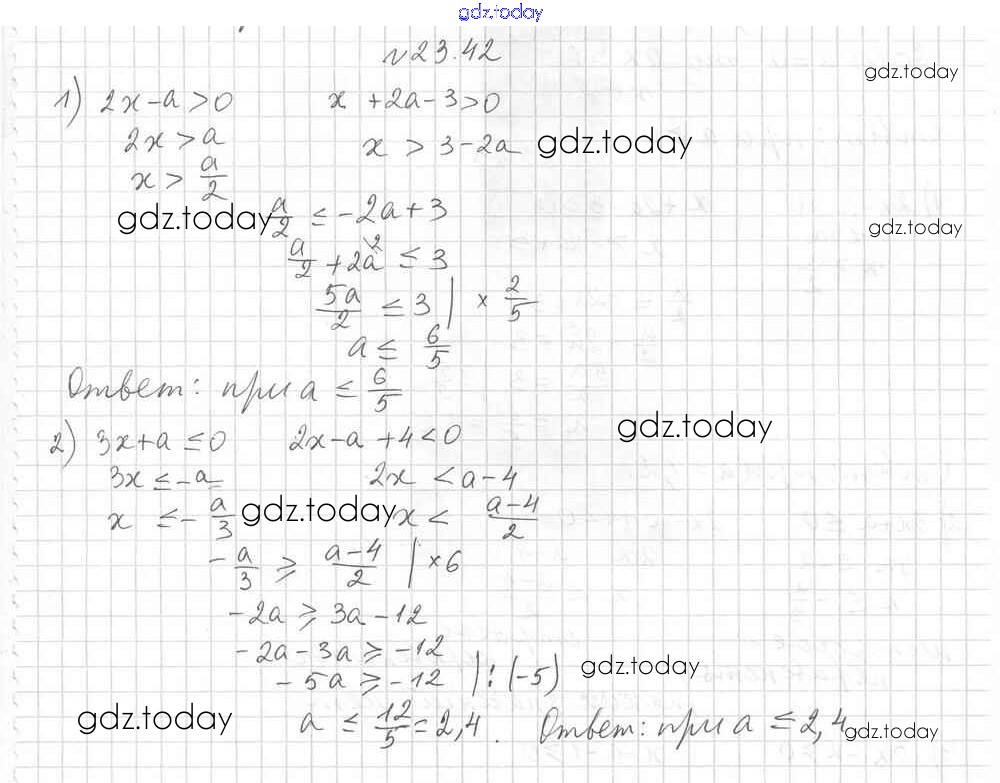 gdz.today
№23.42
gdz.today
1) 2x-a>0 x+2a-3>0
2x>a x>3-2a gdz.today
x> a/2
gdz.today a/2 ≤ -2a+3 gdz.today
a/2 + 2a\2 ≤ 3
5a/2 ≤ 3 | × 2/5
a ≤ 6/5
Ответ: при a ≤ 6/5
gdz.today
2) 3x+a ≤ 0 2x-a+4<0
3x ≤ -a 2x < a-4
x ≤ - a/3 gdz.today x < (a-4)/2
- a/3 ≥ (a-4)/2 | ×6
-2a ≥ 3a-12
-2a-3a ≥ -12
-5a ≥ -12 | : (-5) gdz.today
gdz.today a ≤ 12/5 = 2,4. Ответ: при a ≤ 2,4 gdz.today